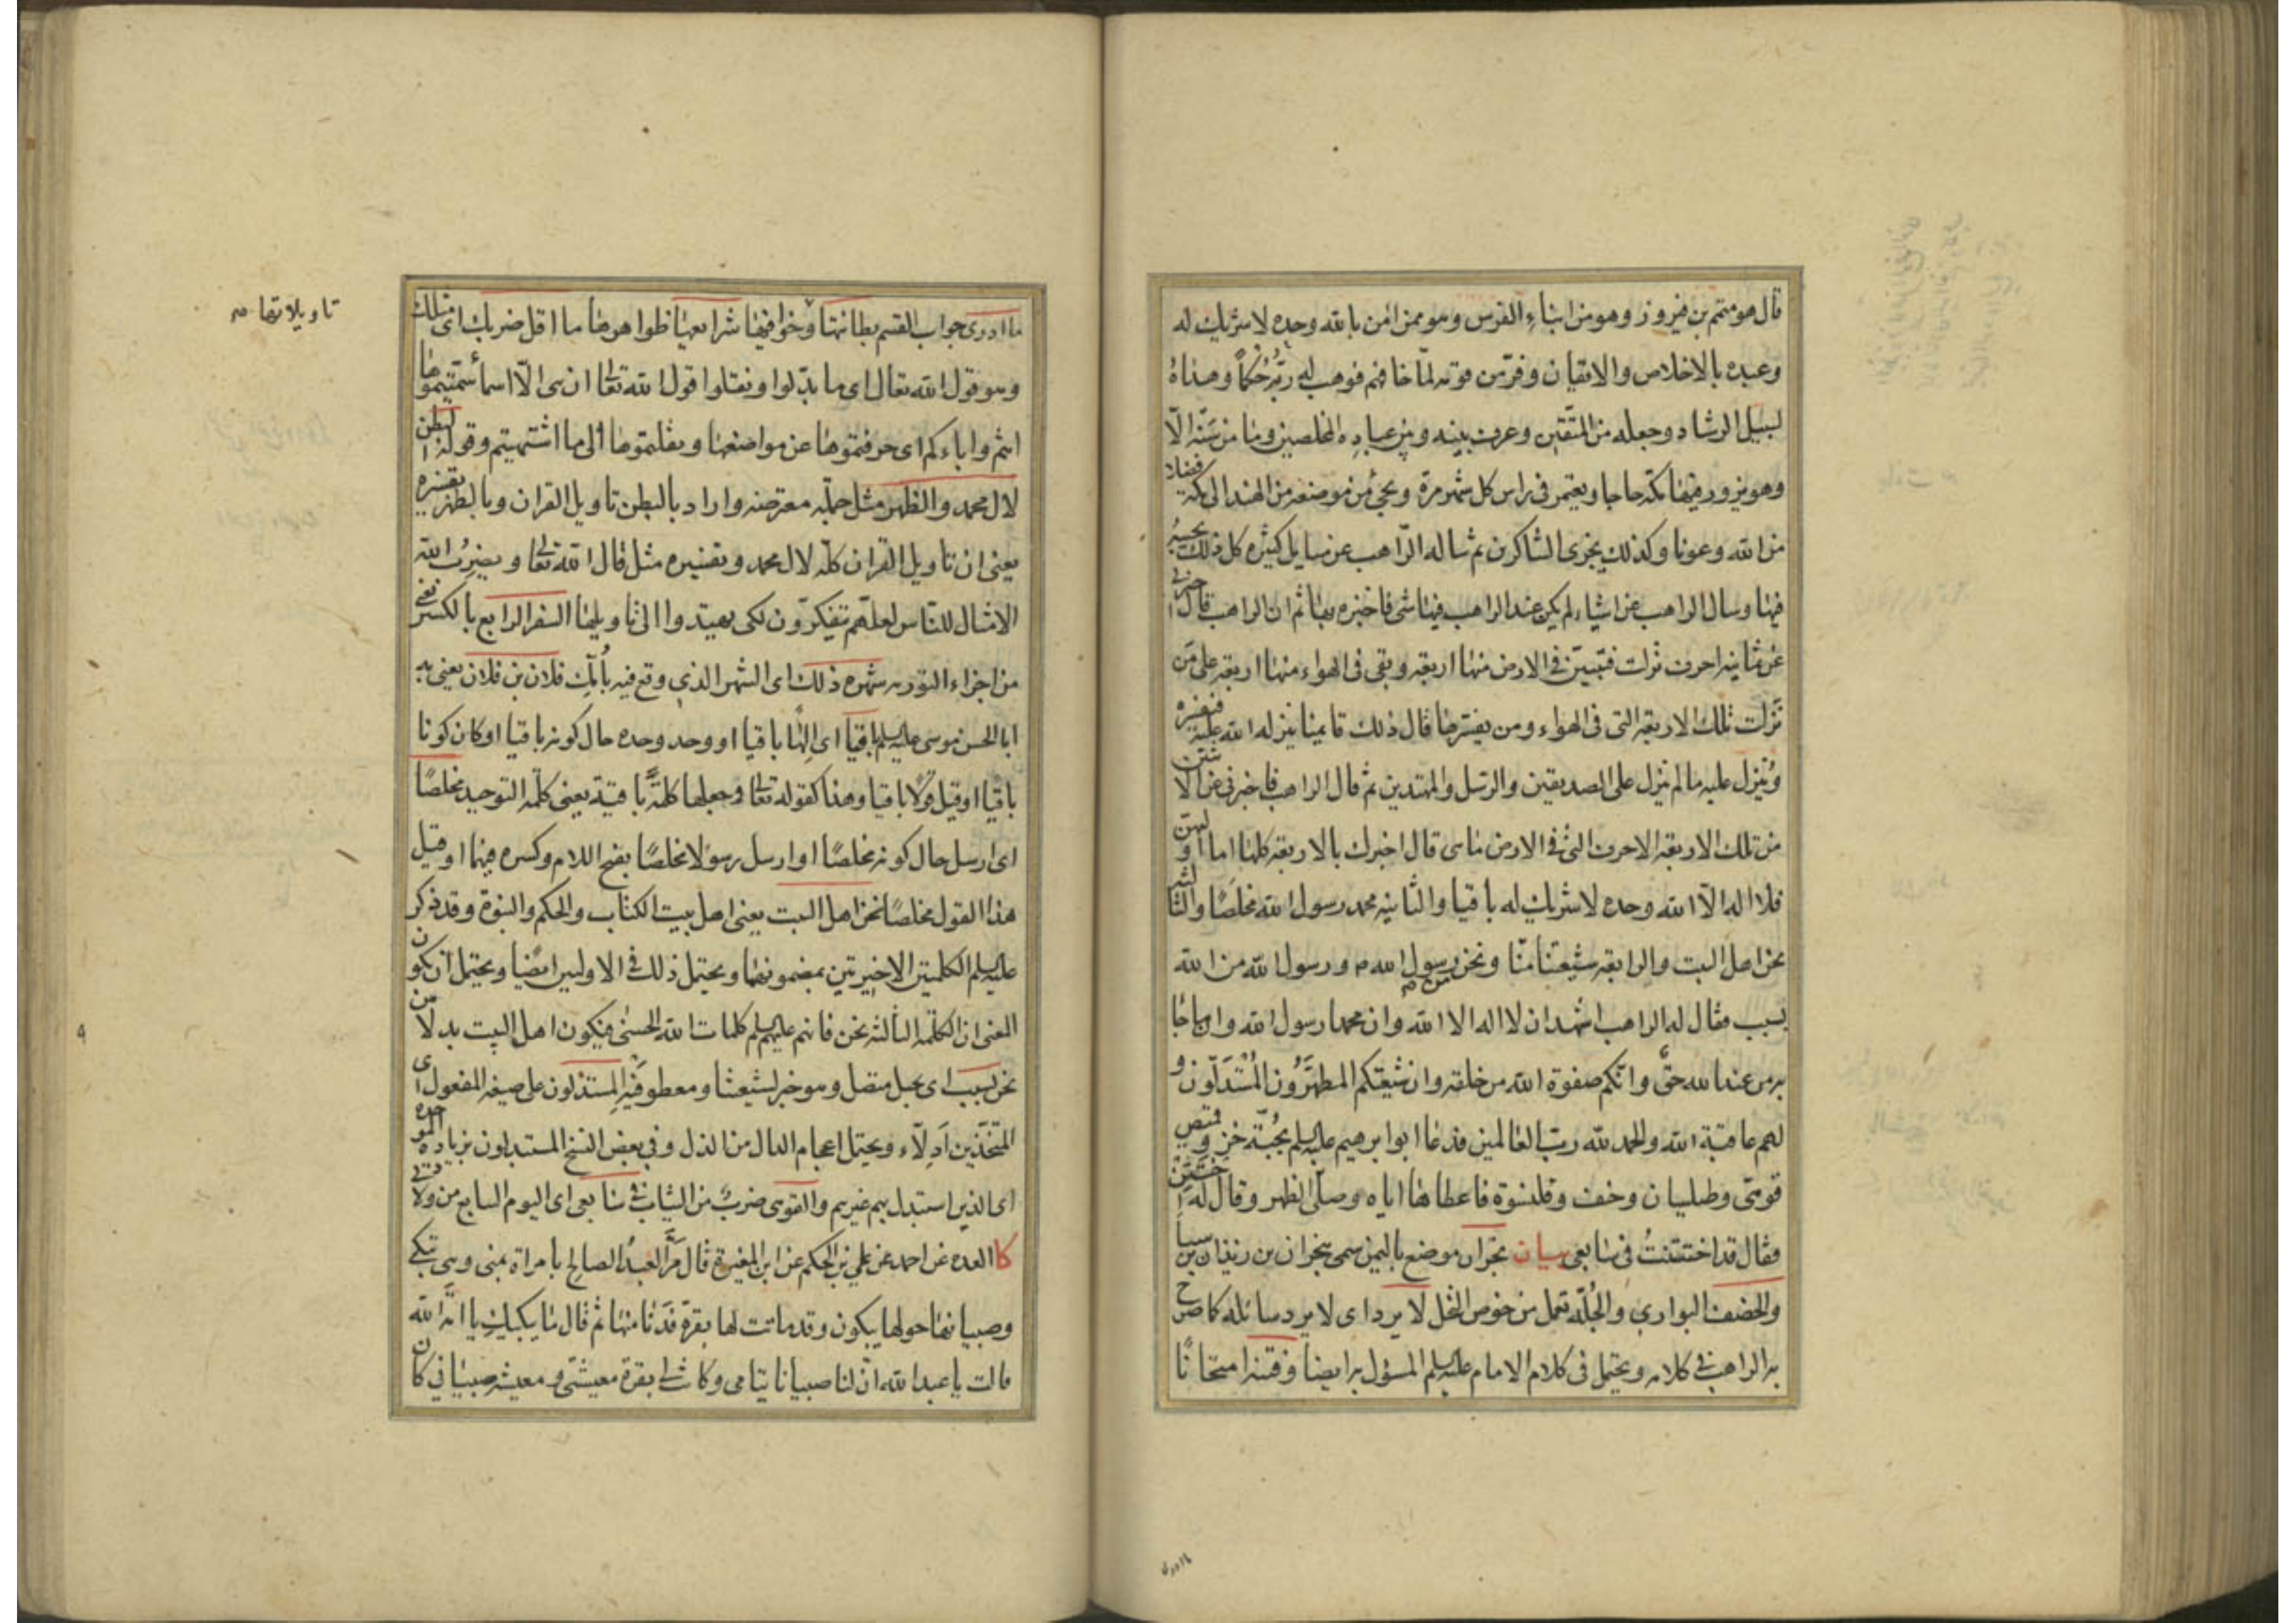 قال هو متمم بن فيروز وهو من ابناء الفرس وهو ممن امن بالله وحده لا شريك له
وعبده بالاخلاص والايقان وفر من قومه لما خافهم فوهب له ربه حكما وهداه
لسبيل الرشاد وجعله من المتقين وعرف بينه وبين عباده المخلصين وما من سنة الا
وهو يزور فيها مكة حاجا ويعتمر في راس كل شهر مرة ويجئ من موضعه من الهند الى مكة فضلا
من الله وعونا وكذلك يجزى الشاكرين ثم ساله الراهب عن مسايل كثيرة كل ذلك يجيبه
فيها وسال الراهب عن اشياء لم يكن عند الراهب فيها شى فاخبره بها ثم ان الراهب قال اخبرني
عن ثمانية احرف نزلت فتبين في الارض منها اربعة وبقى فى الهواء منها اربعة على من
نزلت تلك الاربعة التى فى الهواء ومن يفسرها قال ذلك قايمنا ينزله الله عليه فيفسره
وينزل عليه ما لم ينزل على الصديقين والرسل والمهتدين ثم قال الراهب فاخبرني عن الاثنين
من تلك الاربعة الاحرف التى في الارض ما هى قال اخبرك بالاربعة كلها اما اولهن
فلا اله الا الله وحده لا شريك له باقيا والثانية محمد رسول الله مخلصا والثالثة
نحن اهل البيت والرابعة شيعتنا منا ونحن من رسول الله ص ورسول الله من الله
بسبب فقال له الراهب اشهد ان لا اله الا الله وان محمدا رسول الله وان ما جاء
به من عند الله حق وانكم صفوة الله من خلقه وان شيعتكم المطهرون المستدلون و
لهم عاقبة الله والحمد لله رب العالمين فدعا ابو ابرهيم عليه السلم بجبة خز وقميص
قوهى وطيلسان وخف وقلنسوة فاعطاها اياه وصلى الظهر وقال له اختتن
فقال قد اختتنت في سابعى بيان نجران موضع باليمن سمى بنجران بن زيدان بن سبا
والخصف البوارى والجلة تعمل من خوص النخل لا يرد اى لا يرد سائله كما صرح
به الراهب في كلامه ويحتمل فى كلام الامام عليه السلم المسؤل به ايضا وقسره امتحانا
ما ادرى
ما ادرى جواب القسم بطانتها
وهو قول الله تعالى اى ما بدلوا ونقلوا قول الله تعالى ان هى الا اسماء سميتموها
انتم واباءكم اى حرفتموها عن مواضعها ونقلتموها الى ما اشتهيتم وقوله البطن
لال محمد والظهر مثل جملة معترضة واراد بالبطن تاويل القران وبالظهر تفسيره
يعنى ان تاويل القران كله لال محمد وتفسيره مثل قال الله تعالى ويضرب الله
الامثال للناس لعلهم يتفكرون لكى يهتدوا الى تاويلها السفر الرابع بالكسر يعنى
من اجزاء التورية شهره ذلك اى الشهر الذى وقع فيه بابك فلان بن فلان يعنى به
ابا الحسن موسى عليه السلم باقيا اى الها باقيا او وحد وحده حال كونه باقيا او كان كونا
باقيا او قيل قولا باقيا وهذا كقوله تعالى وجعلها كلمة باقية يعنى كلمة التوحيد مخلصا
اى ارسل حال كونه مخلصا او ارسل رسولا مخلصا بفتح اللام وكسره فيهما او قيل
هذا القول مخلصا نحن اهل البيت يعنى اهل بيت الكتاب والحكم والنبوة وقد ذكر
عليه السلم الكلمتين الاخيرتين بمضمونهما ويحتمل ذلك في الاوليين ايضا ويحتمل ان يكون
المعنى ان الكلمة الثالثة نحن فانهم عليهم السلم كلمات الله الحسنى فيكون اهل البيت بدلا من
نحن بسبب اى بحبل متصل وهو خبر لشيعتنا ومعطوفيه المستذلون على صيغة المفعول اى
المتخذين ادلاء ويحتمل اعجام الدال من الذل وفي بعض النسخ المستبدلون بزيادة الموحدة
اى الذين استبدل بهم غيرهم والقوهى ضرب من الثياب في سابعى اى اليوم السابع من ولادتى
كا العدة عن احمد عن علي بن الحكم عن ابن المغيرة قال مر العبد الصالح بامراة بمنى وهى تبكي
وصبيانها حولها يبكون وقد ماتت لها بقرة فدنا منها ثم قال ما يبكيك يا امة الله
قالت يا عبد الله ان لنا صبيانا يتامى وكانت لى بقرة معيشتى ومعيشة صبيانى كان
تاويلاتها ص